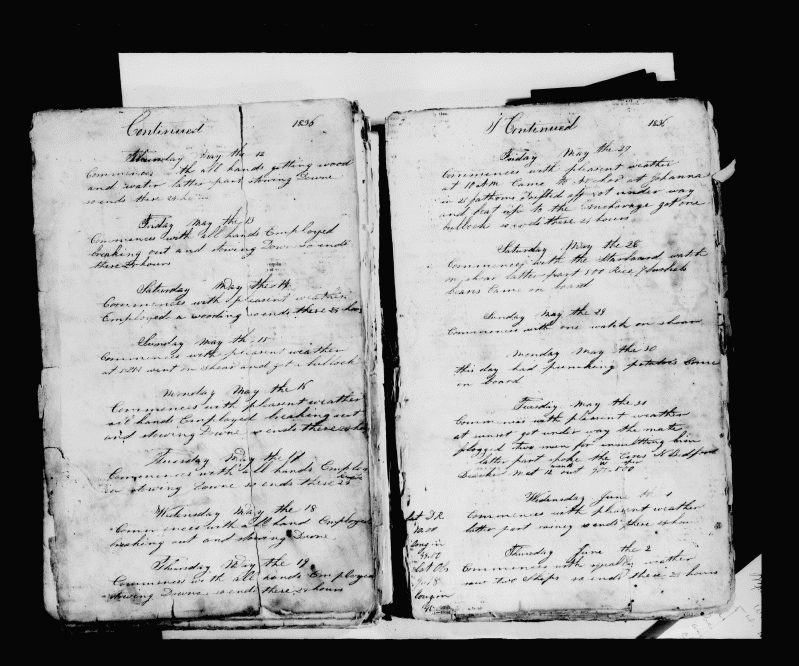 Continued 1836
Thursday May the 12
Commences with all hands getting wood
and water latter part stowing Downe
so ends these 24 hours
Friday May the 13
Commences with all hands Employed
breaking out and stowing Downe so ends
these 24 hours
Saturday May the 14
Commences with pleasent weather
Employed a wooding so ends these 24 hours
Sunday May the 15
Commences with pleasent weather
at went on shear and got a bullock
Monday May the 16
Commences with pleasent weather
all hand Employed breaking out
and stowing Downe so ends these
May the 17
Commences with all hands Employ
in stowing Downe so ends these 24
Wednesday May the 18
Commences with all hand Employed
breaking out and stowing Downe
Thursday May the 19
Commences with all hands Employed
stowing Downe so ends these 24 hours
Continued 1836
Friday May the 27
Commences with pleasent weather
at 10 AM Came to anchor at Johanna
in 25 fathoms Drifted off got under way
and beat up to the anchorage got one
bullock so ends these 24 hours
Saturday May the 28
Commences with the Starboard watch
on shear latter part 500 Rice bushels
beans Came on board
Sunday May the 29
Commences with one watch on shear
Monday May the 30
this day had punching potatoes Come
on board
Tuesday May the 31
Commences with pleasent weather
at got under way the mate
flogged two men for insulting him
latter part spoke the N Bedford
12 months out
Wednesday June the 1
Commences with pleasent weather
latter part rainey so ends these 24 hours
Thursday June the 2
Commences with squally weather
saw two Ships so ends these 24 hours
Lat D R
Long in
Lat Ob
Long in